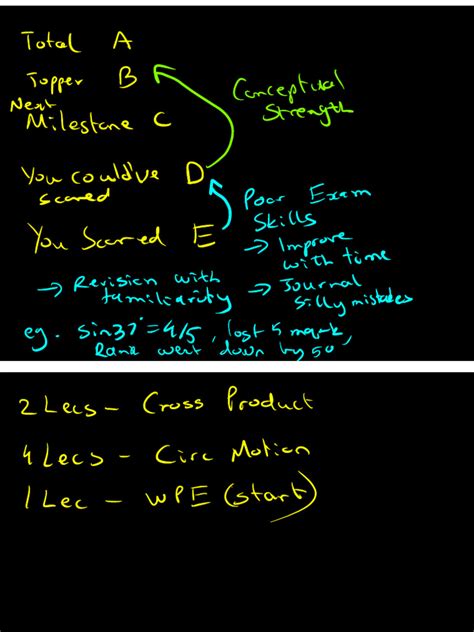 Total A
Topper B
Next
Milestone C
Conceptual
Strength
You could've D
scored
You Scored E
Poor Exam
Skills
→ Improve
with time
→ Revision with
familiarity
→ Journal
silly mistakes
eg. sin37°=4/5, lost 5 mark,
Rank went down by 50,
2 Lecs - Cross Product
4 Lecs - Circ Motion
1 Lec - WPE (start)